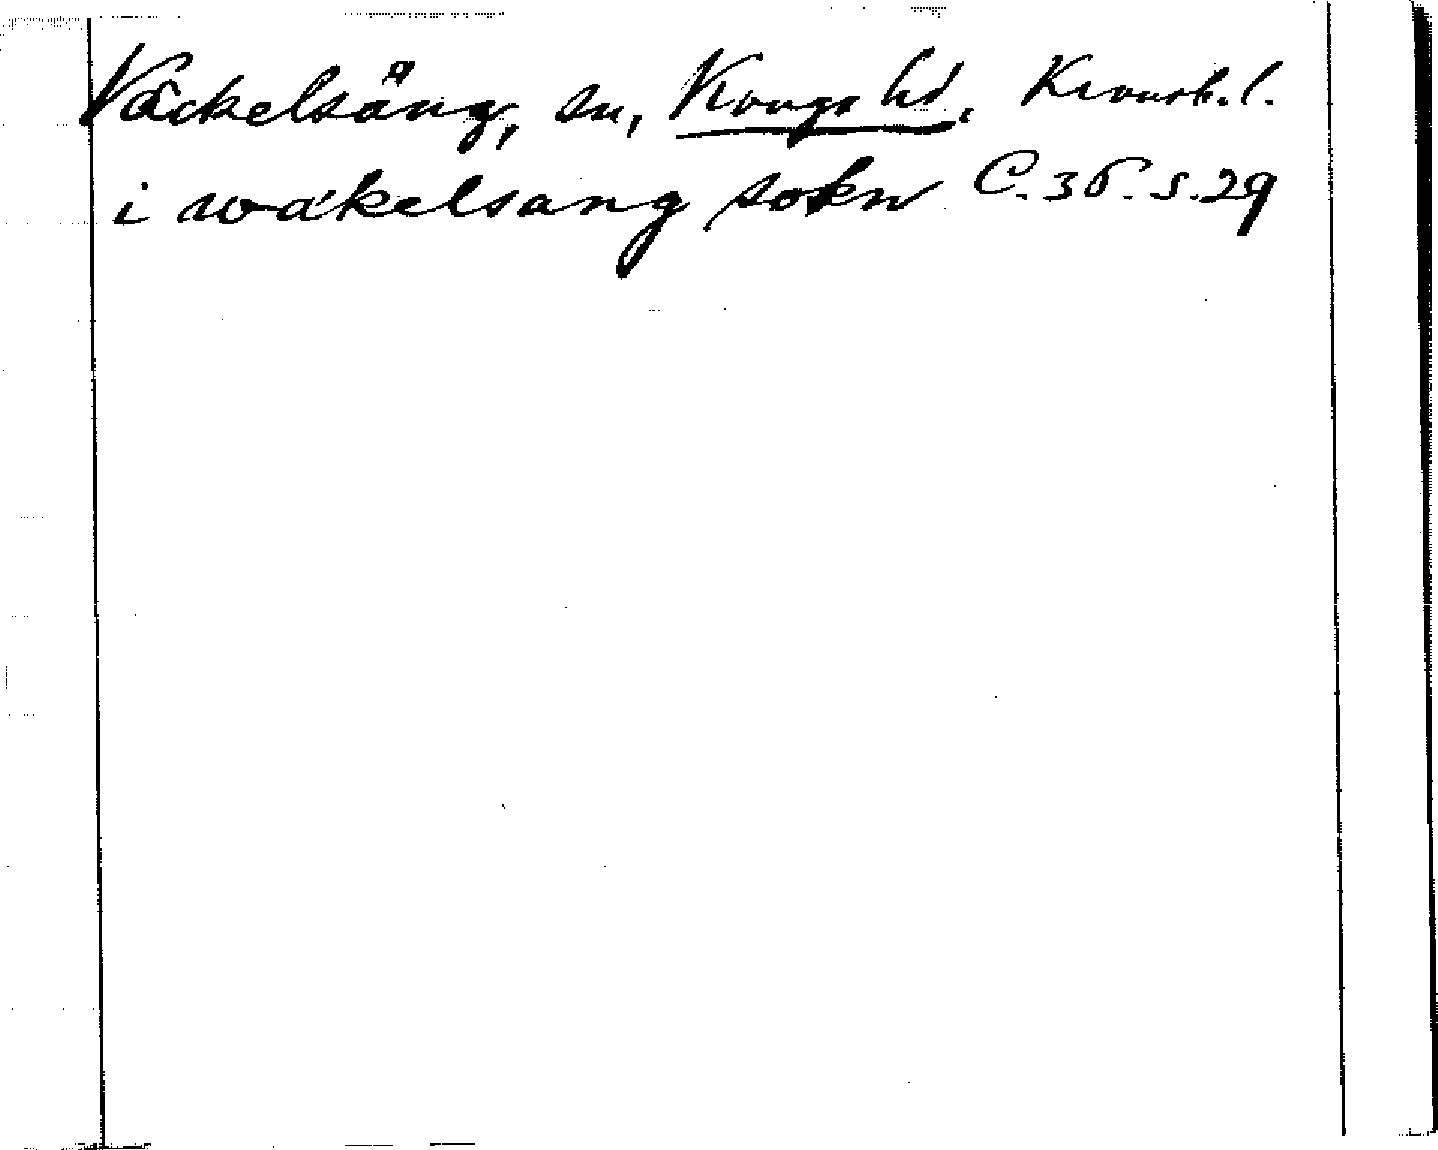 Väckelsång, sn, Konga hd, Kronob. l.
i wakelsang sokn C. 36. s. 29